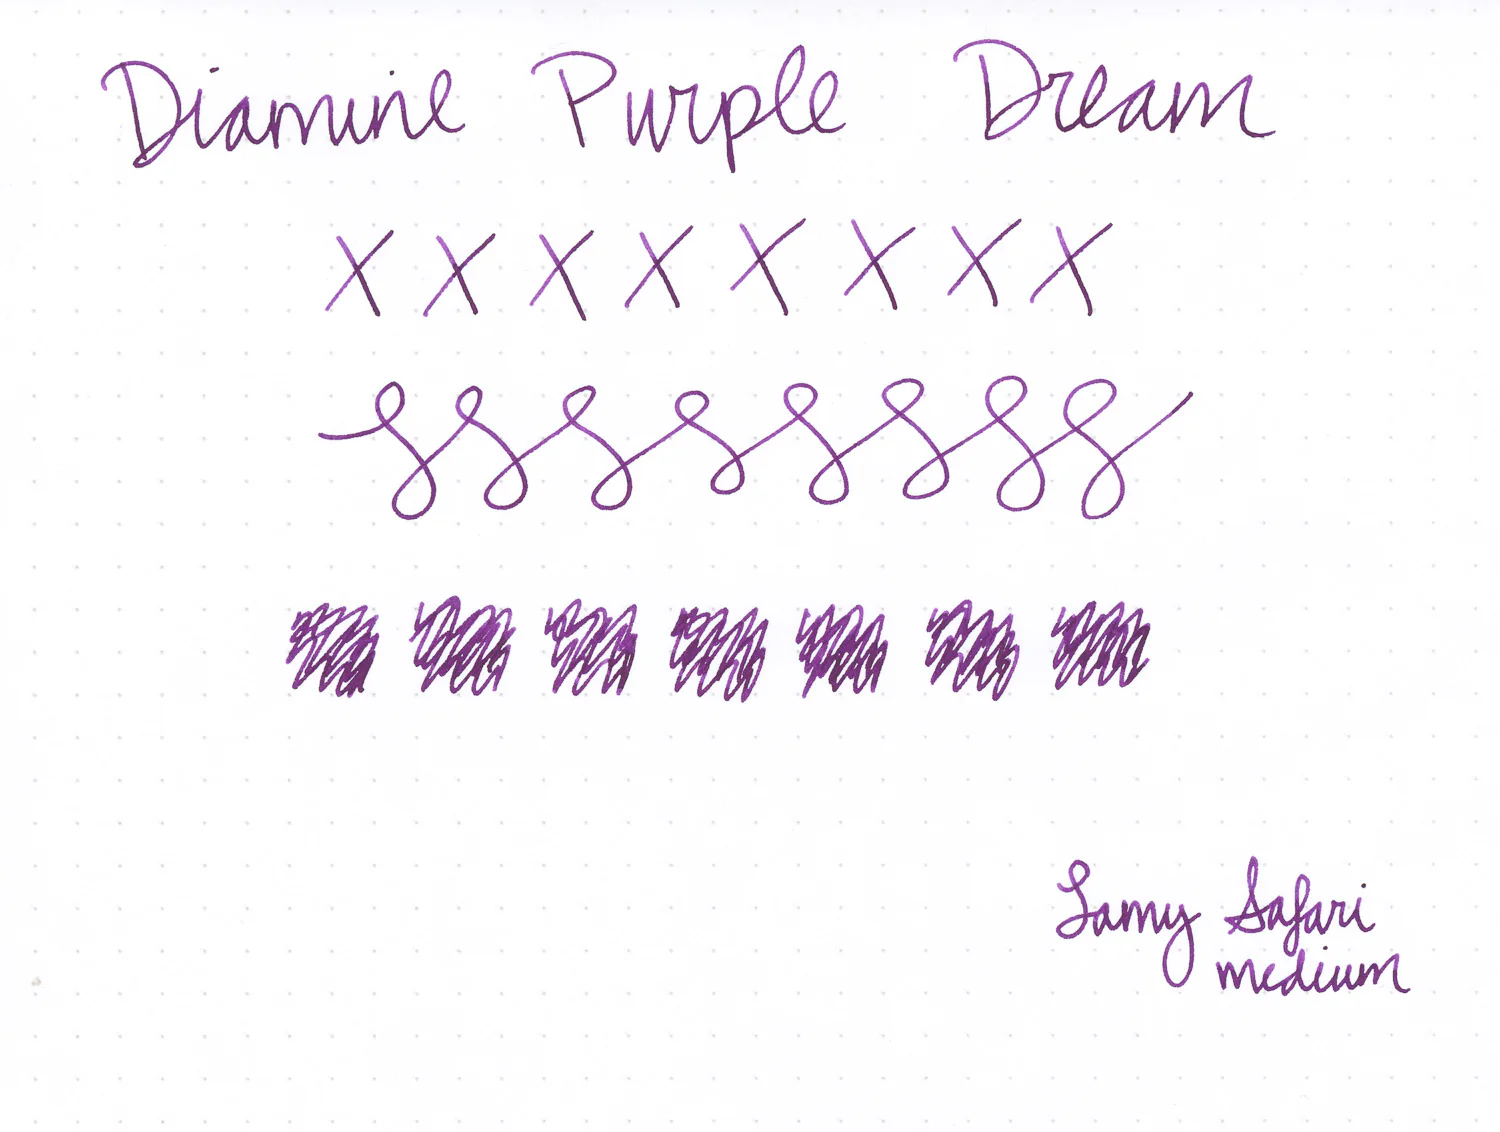 Diamine Purple Dream
X X X X X X X X
Lamy Safari
medium